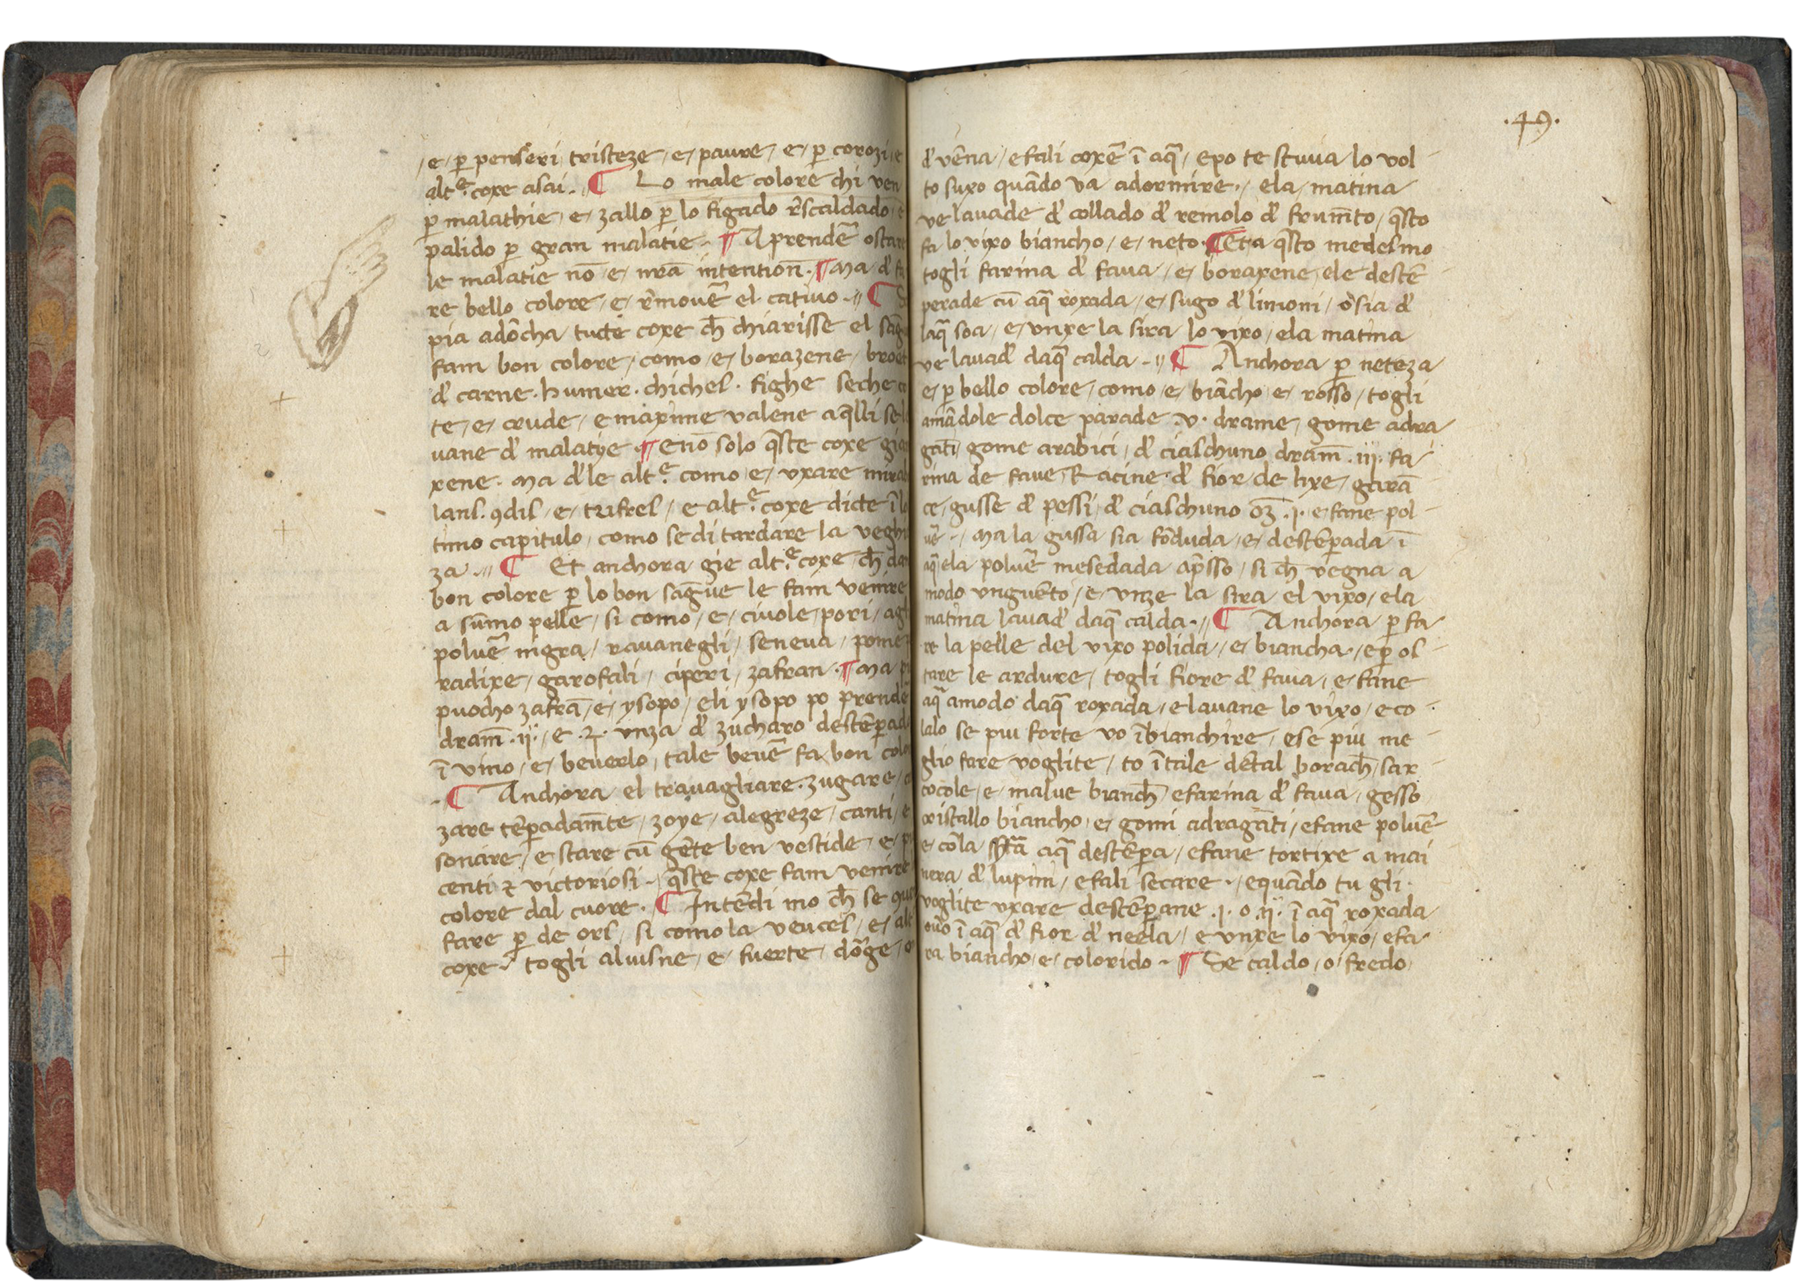 e p̱ penseri tristeze e paure e p̱ corozi e
altᵉ coxe asai. ¶ Lo male colore chi ven
p̱ malathie e zallo p̱ lo figado r̄scaldado
palido p̱ gran malatie. ¶ A prendē ostar
le malatie nō e nr̄a intention̄. ¶ Ma d̄ fa
re bello colore e r̄mouē el catiuo. ¶
pia adōcha tucte coxe ch̄ chiarisse el sāg
fam bon colore como e borazene broe
d̄ carne humer. chichel. fighe seche
te e crude e maxime valene aq̄lli se
uane d̄ malatye ¶ Enō solo q̄ste coxe gio
xene. Ma d̄ le altᵉ como e vxare mira
lanl. ꝯdil e trifrel e altᵉ coxe dicte ī lo
timo capitulo como se di tardare la vegh
za. ¶ Et anchora gie altᵉ coxe ch̄ dan
bon colore p̱ lo bon sāgue le fam venire
a sūmo pelle si como e ciuole pori agl
poluē nigra rauanegli seneua pome
radixe garofali ciperi zafran. ¶ Ma
puocho zafrā e ysopo eli ysopo po prende
dram̄ .ij. e .j. vnza d̄ zucharo destēp̱ad
ī vino e beuerlo tale beuē fa bon colo
¶ Anchora el trauagliare. zugare
zare tēp̱adam̄te zoye alegreze canti e
sonare e stare cū gēte ben vestide e p
centi ⁊ victoriosi. q̄ste coxe fam venire
colore dal cuore. ¶ Intēdi mo ch̄ se ꝯue
fare p̱ de orl si como la veucel e alt
coxe. togli aluisne e fuerte dōge e
.49.
d̄ vēna e fali coxē ī aq̄ e po te stuua lo vol
to suxo quādo va adormire. e la matina
ve lauade d̄ collado d̄ remolo d̄ frum̄to q̄sto
fa lo vixo biancho e neto. ¶ Eta q̄sto medesmo
togli farina d̄ faua e boraxene ele destē
perade cū aq̄ roxada e sugo d̄ limoni o sia d̄
laq̄ soa e vnxe la sira lo vixo e la matina
ve lauad̄ daq̄ calda. ¶ Anchora p̱ neteza
e p̱ bello colore como e biācho e rosso togli
amādole dolce parade .v. drame gome adra
gāti gome arabici d̄ cialschuno dram̄ .iij. fa
rina de faue Racine d̄ fior de lixe garā
ce gusse d̄ pessi d̄ cialschuno oʒ .j. e fane pol
uē. Ma la gussa sia fōduda e destēp̱ada ī
aq̄ e la poluē mesedada ap̄sso si ch̄ vegna a
modo vnguēto e vnze la sira el vixo e la
matina lauad̄ daq̄ calda. ¶ Anchora p̱ fa
re la pelle del vixo polida e biancha. e p̱ ol
tare le ardure togli fiore d̄ faua e fane
aq̄ amodo daq̄ roxada e lauane lo vixo e co
lalo se piu forte vo ībianchire e se piu me
glio fare voglite to ī tale dētal borach̄ sar
cocole e malue bianch̄ e farina d̄ faua gesso
cristallo biancho e gomi adragāti e fane poluē
e cōla aq̄ destēp̱a e fane tortixe a mai
nera d̄ lupini e fali secare. e quādo tu gli
voglite vxare destēp̱ane .j. o .ij. ī aq̄ roxada
ouō ī aq̄ d̄ fior d̄ neela e vnxe lo vixo e fa
ra biancho e colorido. ¶ Se caldo o fredo